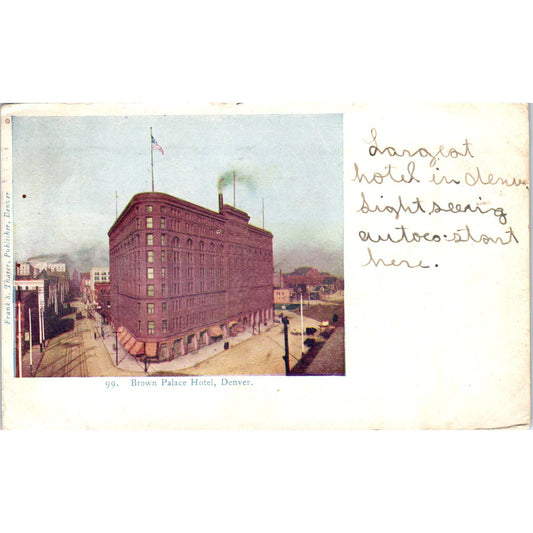 Largest
hotel in denver
sight seeing
autoes start
here.
Frank S. Thayer, Publisher, Denver
99. Brown Palace Hotel, Denver.